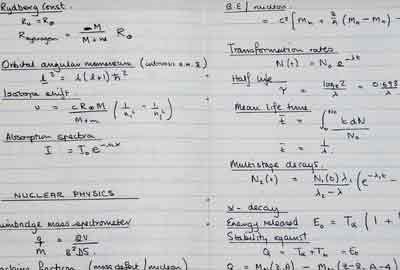 Rydberg Const.
R₀ = R∞
R hydrogen = M / M+m R∞
Orbital angular momentum
l² = l(l+1)ħ²
Isotope shift.
ν = cR∞M / M+m (1/n₁² − 1/n₂²)
Absorption spectra
I = I₀e
NUCLEAR PHYSICS
mass spectrometer
q/m = / B²DS
fraction (mass defect / nucleon)
B.E / nucleon
= c² [Mₙ +
Transformation rates
N(t) = N₀ e^-λt
Half life
τ = logₑ2 / λ = 0.693
Mean life time
t̄ = ∫ t dN / N₀
t̄ = 1/λ
Multistage decays.
N₂(t) = N₁(0)λ₁ / λ₂ − λ₁ (e^-λ₁t −
α - decay
Energy released E₀ = Tα (1 +
Stability against
Q = Tα + = E₀